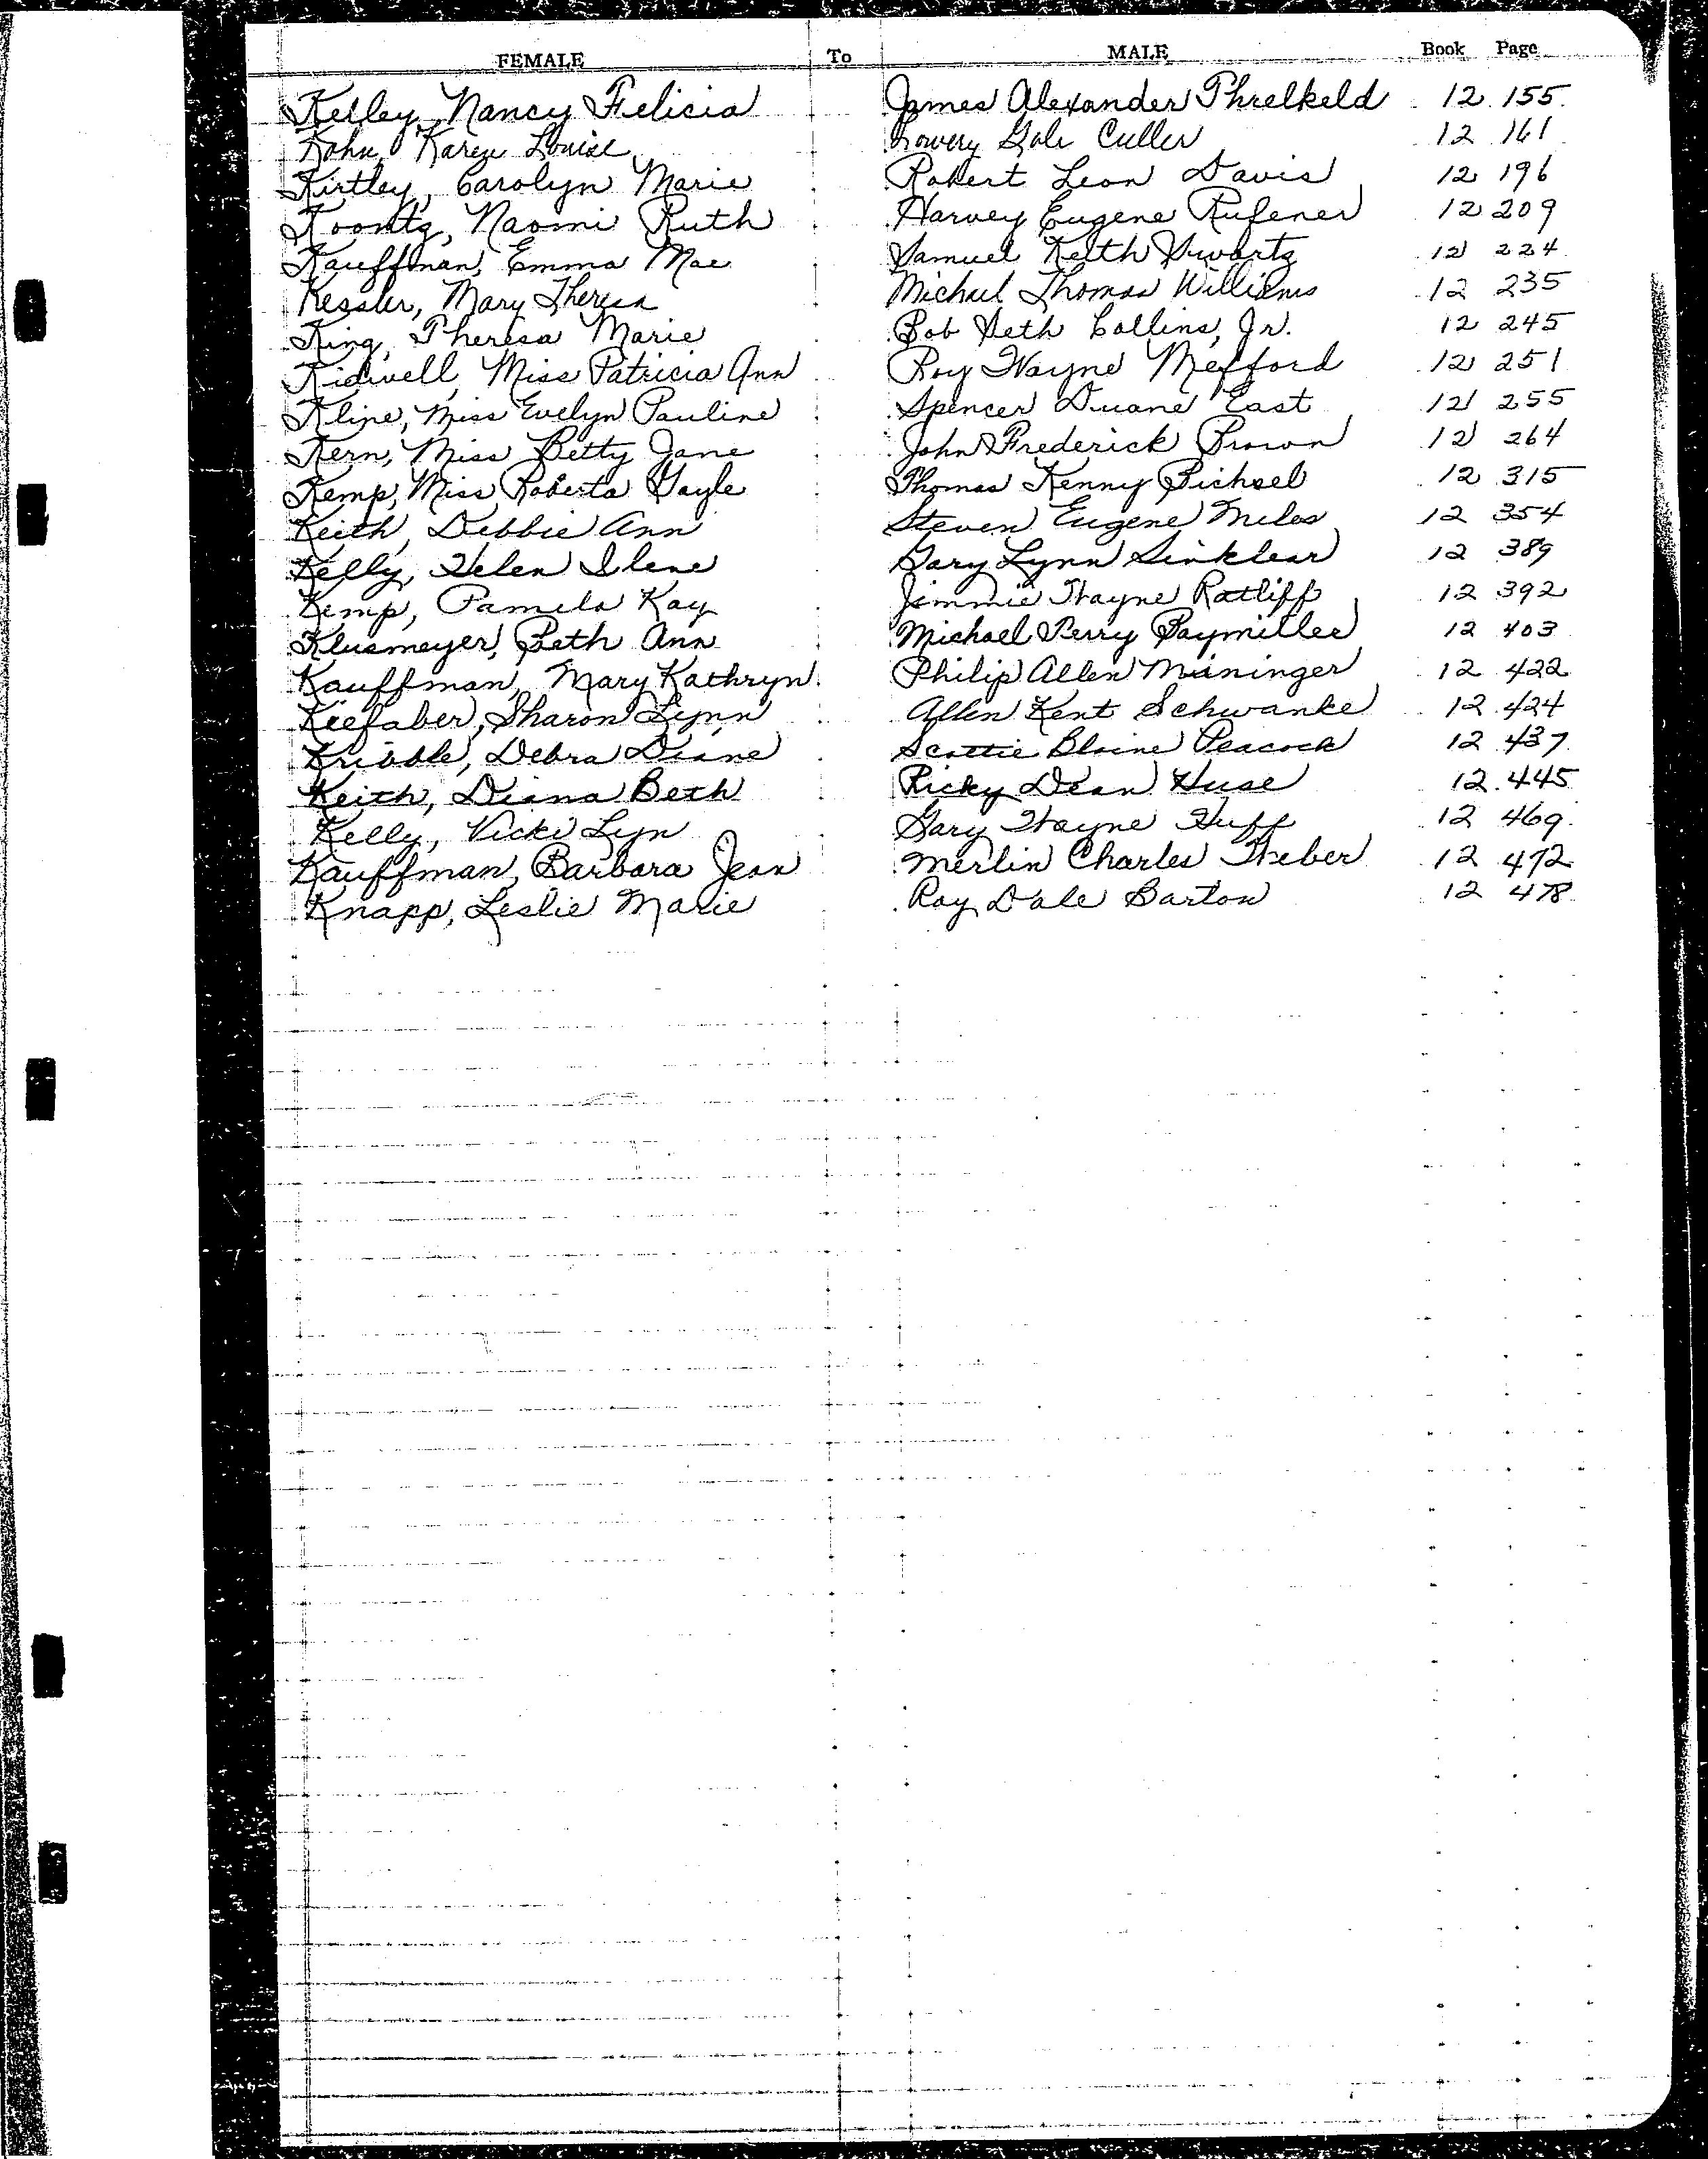 FEMALE To MALE Book Page
Kelley, Nancy Felicia James Alexander Threlkeld 12 155
Kohn, Karen Louise Lowery Gale Culler 12 161
Kirtley, Carolyn Marie Robert Leon Davis 12 196
Koontz, Naomi Ruth Harvey Eugene Rufener 12 209
Kauffman, Emma Mae Samuel Keith Swartz 12 224
Kessler, Mary Theresa Michael Thomas Williams 12 235
King, Theresa Marie Bob Seth Collins, Jr. 12 245
Kidwell, Miss Patricia Ann Roy Wayne Mefford 12 251
Kline, Miss Evelyn Pauline Spencer Duane East 12 255
Kern, Miss Betty Jane John Frederick Brown 12 264
Kemp, Miss Roberta Gayle Thomas Kenny Bichsel 12 315
Keith, Debbie Ann Steven Eugene Miles 12 354
Kelly, Helen Ilene Gary Lynn Sinklear 12 389
Kemp, Pamela Kay Jimmie Wayne Ratliff 12 392
Klusmeyer, Beth Ann Michael Perry Baymiller 12 403
Kauffman, Mary Kathryn Philip Allen Mininger 12 422
Kiefaber, Sharon Lynn Allen Kent Schwanke 12 424
Kribble, Debra Diane Scottie Blaine Peacock 12 437
Keith, Diana Beth Ricky Dean Huse 12 445
Kelly, Vicki Lyn Gary Wayne Huff 12 469
Kauffman, Barbara Jean Merlin Charles 12 472
Knapp, Leslie Marie Roy Dale Barton 12 478